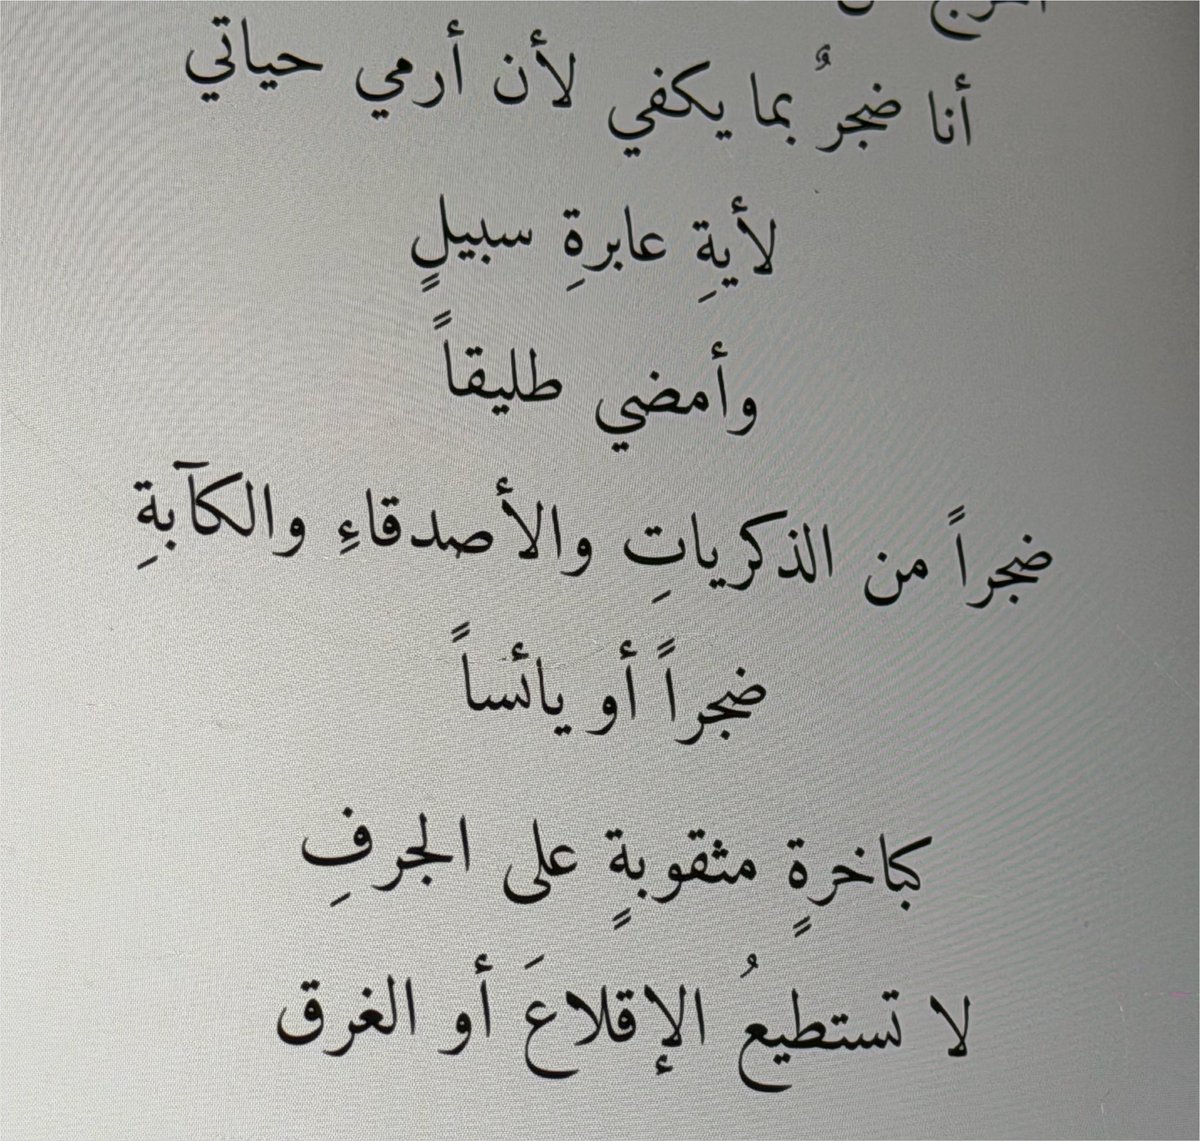 أنا ضجرٌ بما يكفي لأن أرمي حياتي
لأيةِ عابرةِ سبيلٍ
وأمضي طليقاً
ضجراً من الذكرياتِ والأصدقاءِ والكآبةِ
ضجراً أو يائساً
كباخرةٍ مثقوبةٍ على الجرفِ
لا تستطيعُ الإقلاعَ أو الغرق